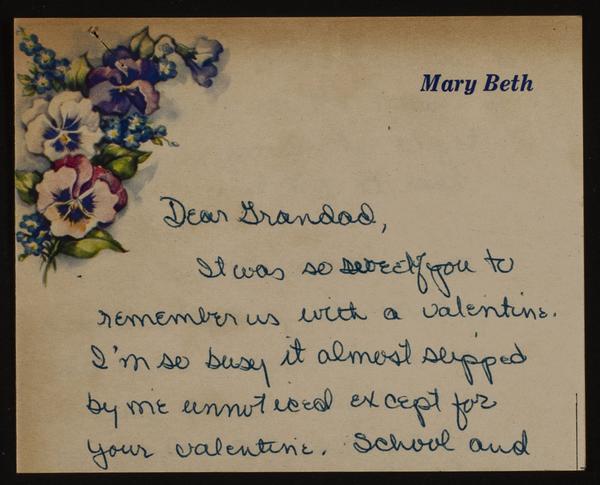 Mary Beth
Dear Grandad,
It was so sweet of you to
remember us with a valentine.
I'm so busy it almost slipped
by me unnoticed except for
your valentine. School and